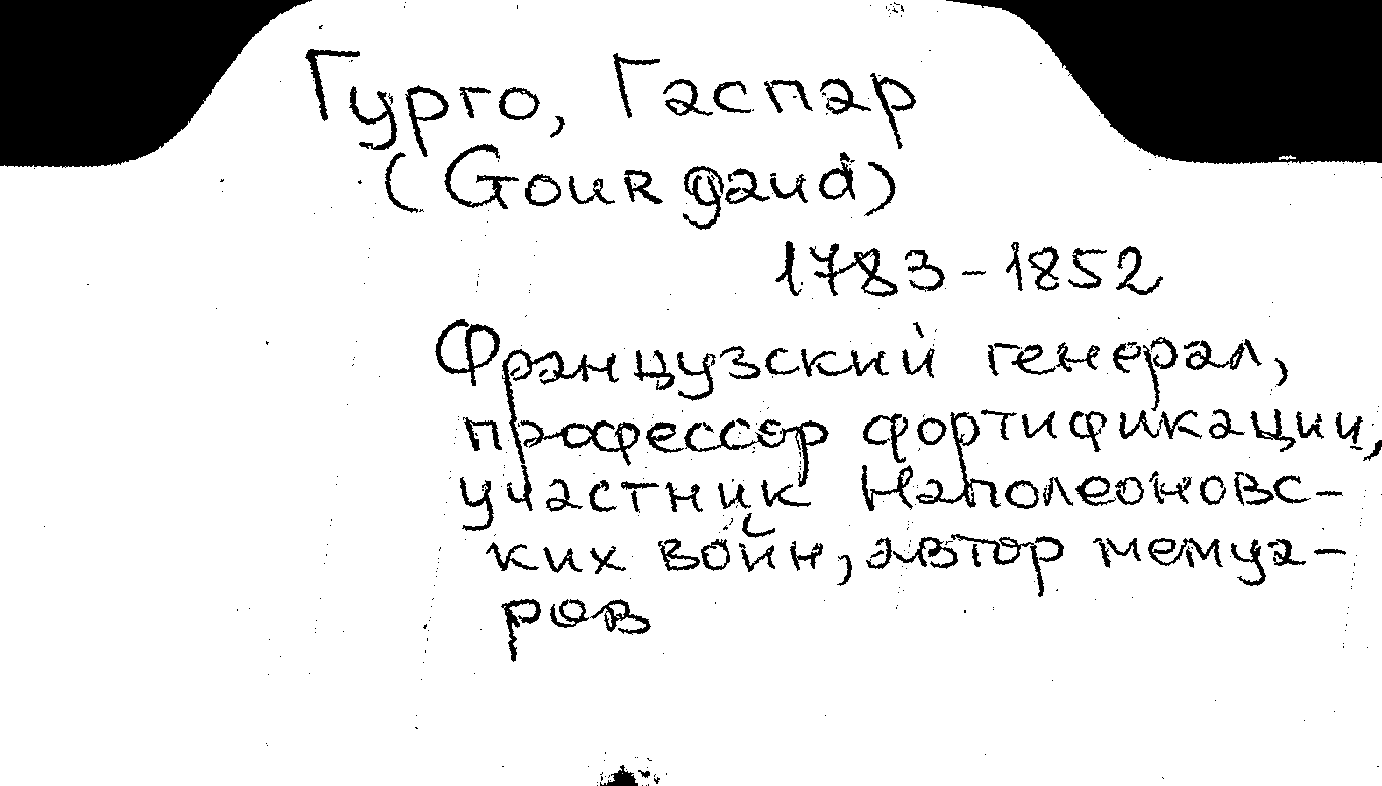 Гурго, Гаспар
(Gourgaud)
1783-1852
Французский генерал,
профессор фортификации,
участник Наполеоновс-
ких войн, автор мемуа-
ров